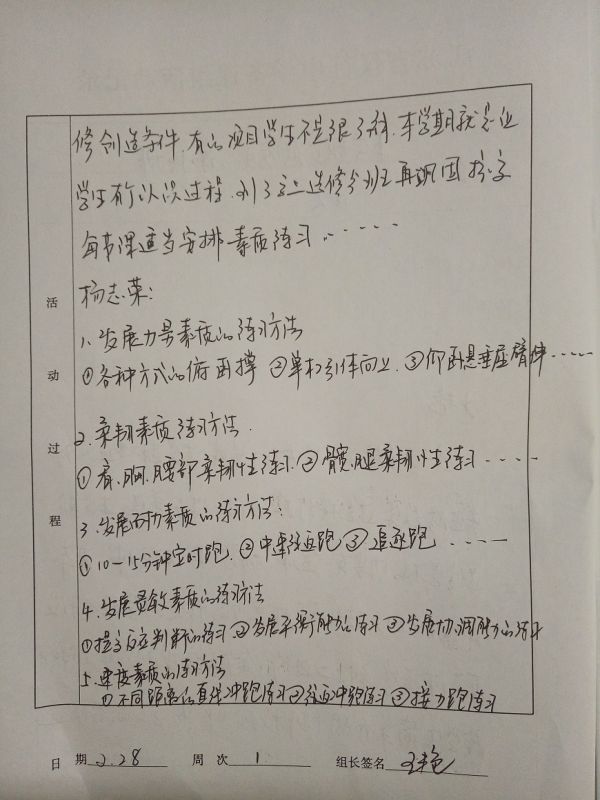 修创造条件,有的项目学生不是很了解.本学期就是让
学生有个认识过程.到了高二选修分班再巩固提高
每节课适当安排素质练习……
活动过程
杨志荣:
1、发展力量素质的练习方法
①各种方式的俯卧撑 ②单杠引体向上 ③仰卧悬垂屈臂伸……
2、柔韧素质练习方法.
①肩、胸、腰部柔韧性练习.②髋、腿柔韧性练习……
3、发展耐力素质的练习方法:
①10-15分钟定时跑.②中速往返跑③追逐跑……
4、发展灵敏素质的练习方法
①提高反应判断的练习②发展平衡能力的练习③发展协调能力的练习
5、速度素质的练习方法
①不同距离的直线冲跑练习②往返冲跑练习③接力跑练习
日 期 2.28 周 次 1 组长签名 王艳